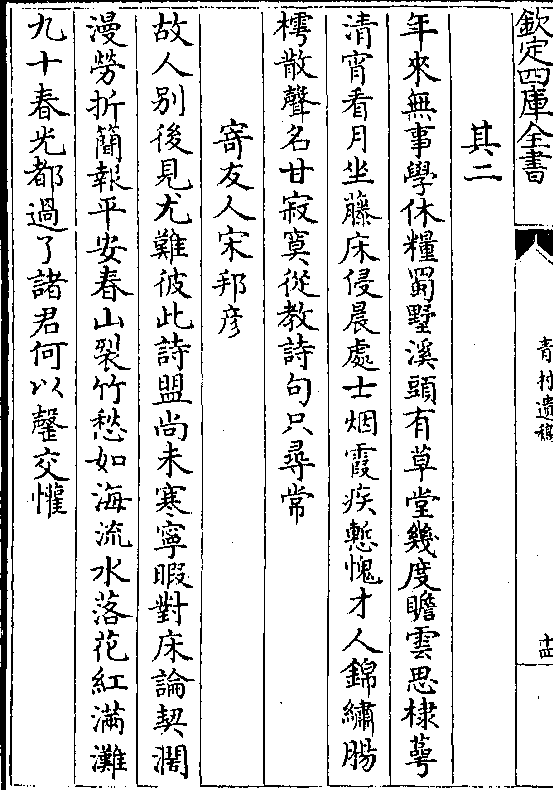 欽定四庫全書
青村遺稿
十四
其二
年來無事學休糧蜀墅溪頭有草堂幾度瞻雲思棣萼
清宵看月坐藤床侵晨處士烟霞疾慙愧才人錦繡腸
樗散聲名甘寂寞從教詩句只尋常
寄友人宋邦彦
故人别後見尤難彼此詩盟尚未寒寧暇對床論契濶
漫勞折簡報平安春山裂竹愁如海流水落花紅滿灘
九十春光都過了諸君何以罄交懽